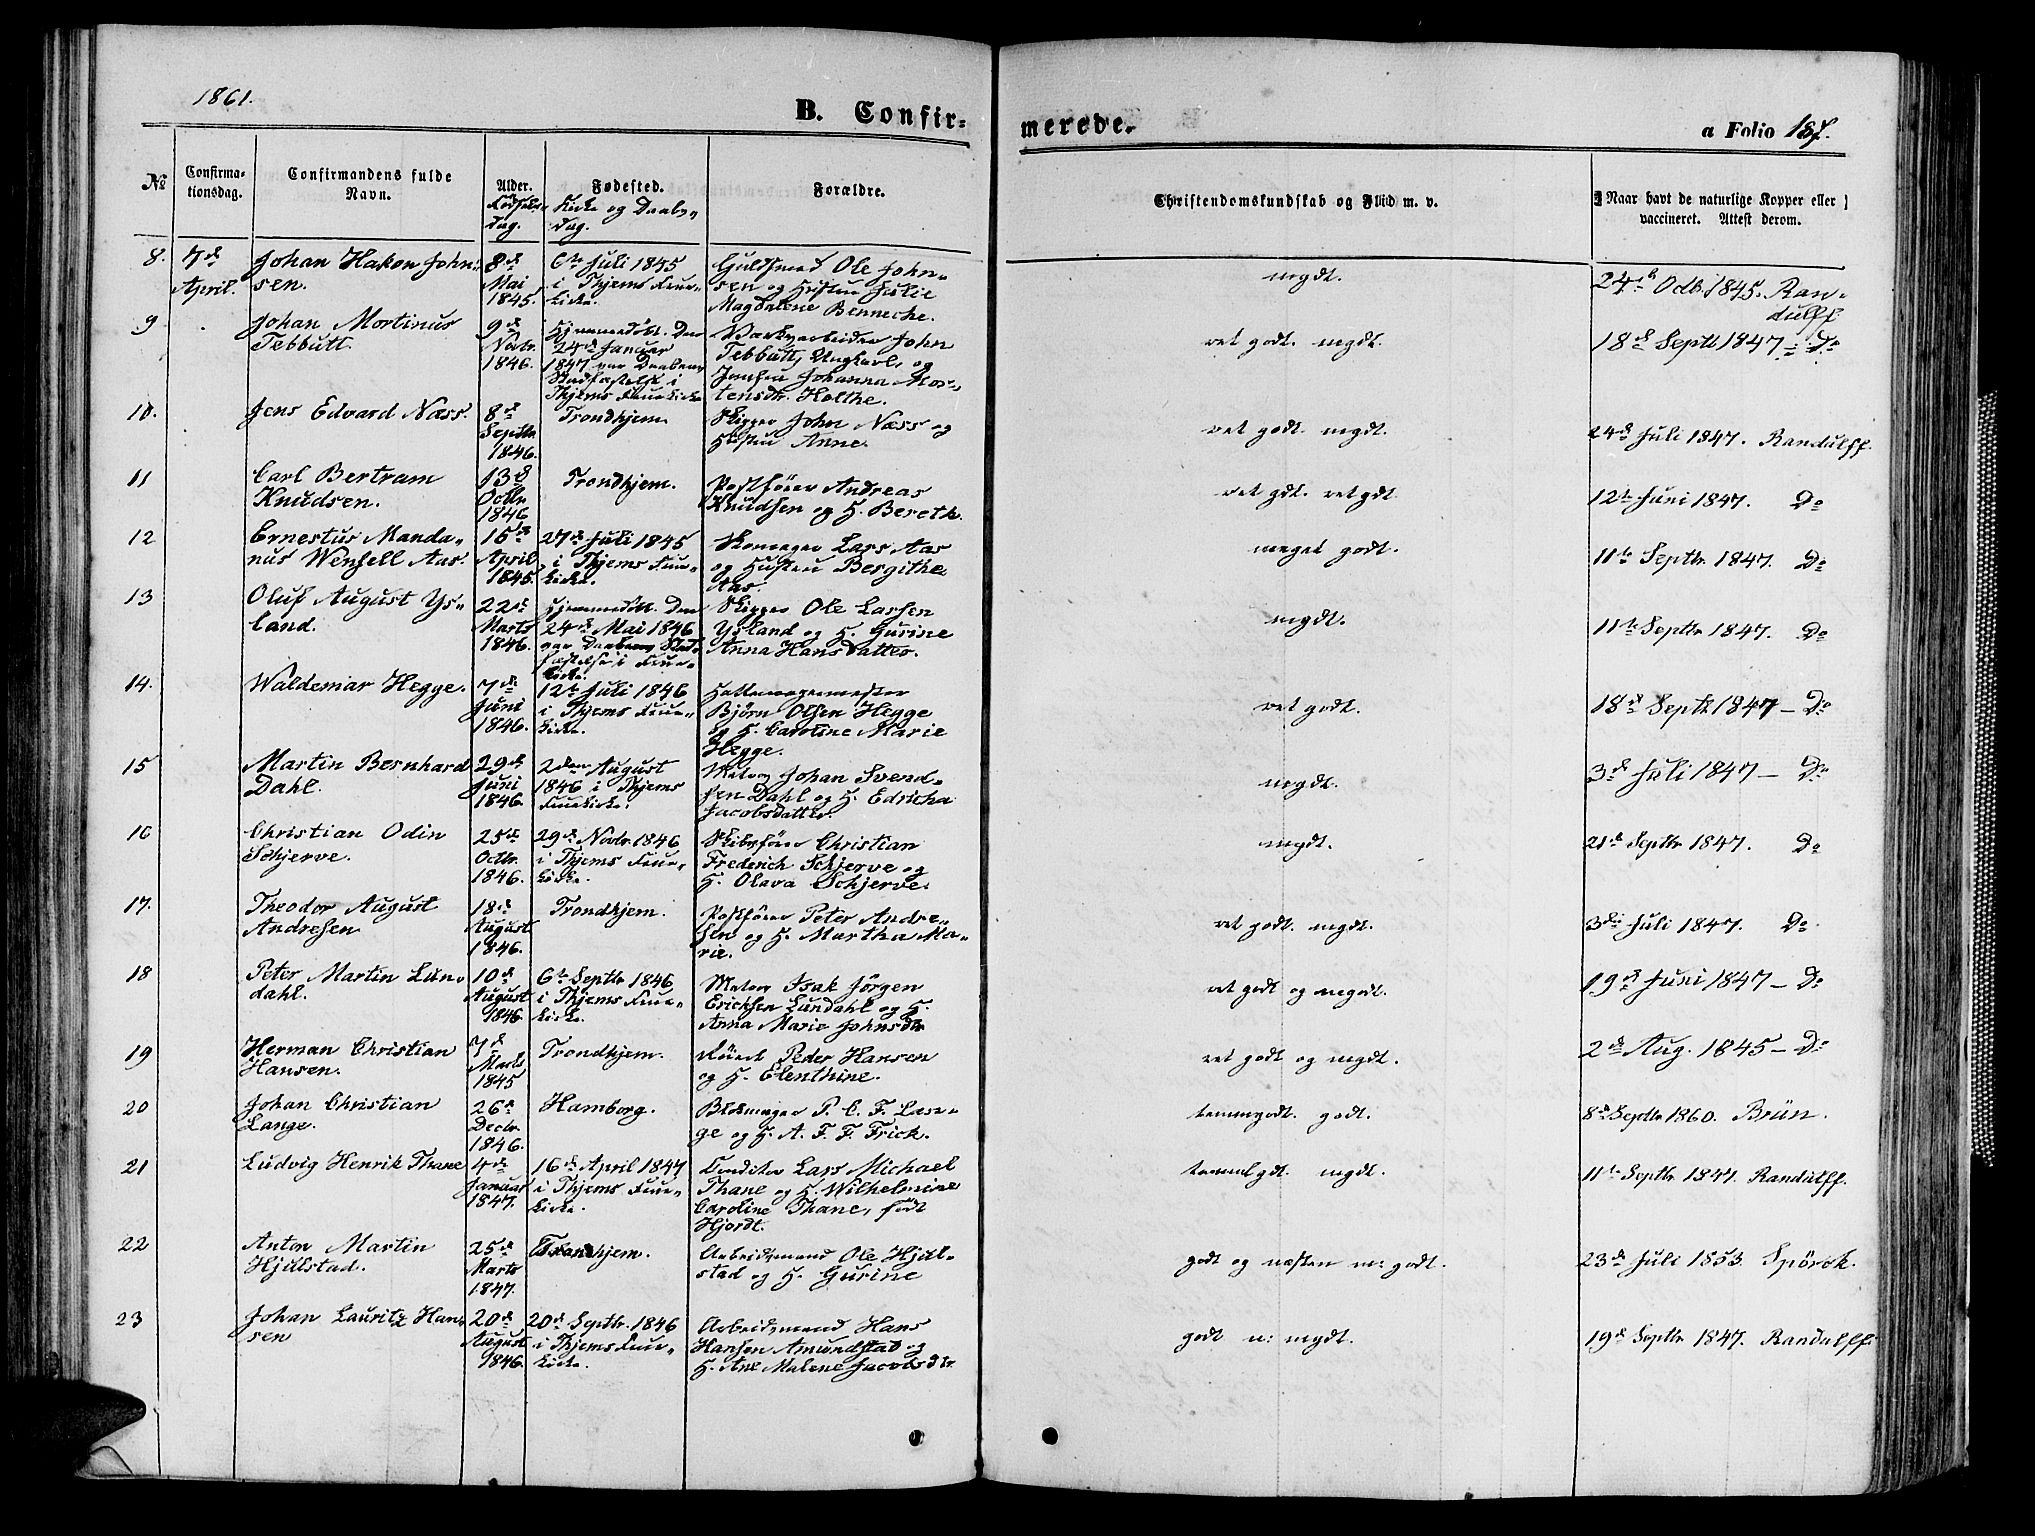 1861.
B. Confir-
merede.
a Folio 187.
№
Confirma-
tionsdag.
Confirmandens fulde
Navn.
Alder.
Fødsels-
dag.
Fødested.
Kirke og Daabs-
dag.
Forældre.
Christendomskundskab og Fliid m. v.
Naar havt de naturlige Kopper eller
vaccineret. Attest derom.
8. 7de April. Johan Hakon John-
sen.
8de
Mai
1845.
6te Juli 1845
i Thjems Frue-
kirke.
Guldsmed Ole John-
sen og Hustru Julie
Magdalene Bennecke.
mgdt.
24de Octbr. 1845. Ran-
dulff
9 Johan Mortinus
Tebbutt.
9de
Novbr.
1846.
Hjemmedøbt. Den
24de Januar
1847 var Daabens
Stadfæstelse i
Thjems Fruekirke
Værksarbeider John
Tebbutt, Ungkarl, og
Johanna Mor-
tensdr. Holthe.
vet godt. mgdt.
18de Septb 1847 - Do
10. Jens Edvard Næss.
8de
Septbr
1846.
Trondhjem
Skipper John Næss og
Hustru Anne.
vet godt. mgdt.
24de Juli 1847. Randulff.
11 Carl Bertram
Knudsen.
13de
Octbr.
1846
Trondhjem.
Postfører Andreas
Knudsen og H. Bereth.
vet gdt. vet gdt
12te Juni 1847. Do
12 Ernestus Manda-
nus Wensell Aas.
15de
April
1845.
27de Juli 1845
i Thjems Frue-
kirke.
Skomager Lars Aas
og Hustru Bergithe
Aas.
meget godt.
11te Septbr. 1847. Do
13 Oluf August Ys-
land.
22de
Marts
1846.
Hjemmedøbt. Den
24de Mai 1846
var Daabens Stad-
fæstelse i Frue-
kirke.
Skipper Ole Larsen
Ysland og H. Gurine
Anna Hansdatter.
mgdt.
11te Septbr 1847. Do
14. Waldemar Hegge.
7de
Juni
1846.
12te Juli 1846
i Thjems Frue-
kirke.
Hattemagermester
Bjørn Olsen Hegge
og H. Caroline Marie
Hegge.
vet godt.
18de Septb 1847 - Do
15 Martin Bernhard
Dahl.
29de
Juni
1846.
2den August
1846 i Thjems
Fruekirke.
Matros Johan Svend-
sen Dahl og H. Edricha
Jacobsdatter.
mgdt.
3de Juli 1847 - Do
16 Christian Odin
Schjerve.
25de
Octbr.
1846.
29de Novbr. 1846
i Thjems Frue-
kirke.
Skibsfører Christian
Frederich Schjerve og
H. Olava Schjerve.
mgdt.
21de Septbr 1847. Do
17. Theodor August
Andresen
18de
August
1846.
Trondhjem.
Postfører Peter Andre-
sen og H. Martha Ma-
rie.
vet godt. mgdt.
3die Juli 1847. Do.
18 Peter Martin Lun-
dahl.
10de
August
1846
6te Septbr 1846
i Thjems Frue-
kirke.
Matros Isak Jörgen
Ericksen Lundahl og H.
Anna Marie Johnsdtr
vet godt og megodt.
19de Juni 1847 - Do
19 Herman Christian
Hansen.
7de
Marts
1845
Trondhjem.
Peder Hansen
og H. Elenthine.
vet godt og mgdt.
2de Aug. 1845 - Do
20 Johan Christian
Lange.
26de
Decbr.
1846.
Hamborg.
P. C. F. Lan-
ge og H. A. F. F. Frick.
temmgodt. godt.
8de Septbr 1860. Brün.
21 Ludvig Henrik Thane
4de
Januar
1847.
16de April 1847
i Thjems Frue-
kirke.
Conditor Lars Michael
Thane og H. Wilhelmine
Caroline Thane, født
Hjordt.
temmlgdt. mgdt.
11te Septbr 1847. Randulff.
22 Anton Martin
Hjulstad.
25de
Marts
1847.
Trondhjem.
Arbeidsmand Ole Hjul-
stad og H. Gurine
godt og næsten m: godt.
23de Juli 1853. Spörck.
23 Johan Lauritz Han-
sen
20de
August
1846.
20de Septbr. 1846
i Thjems Frue-
kirke.
Arbeidsmand Hans
Hansen Amundstad og
H. Ane Malene Jacobsdtr
godt n: mgdt.
19de Septbr 1847. Randulff.